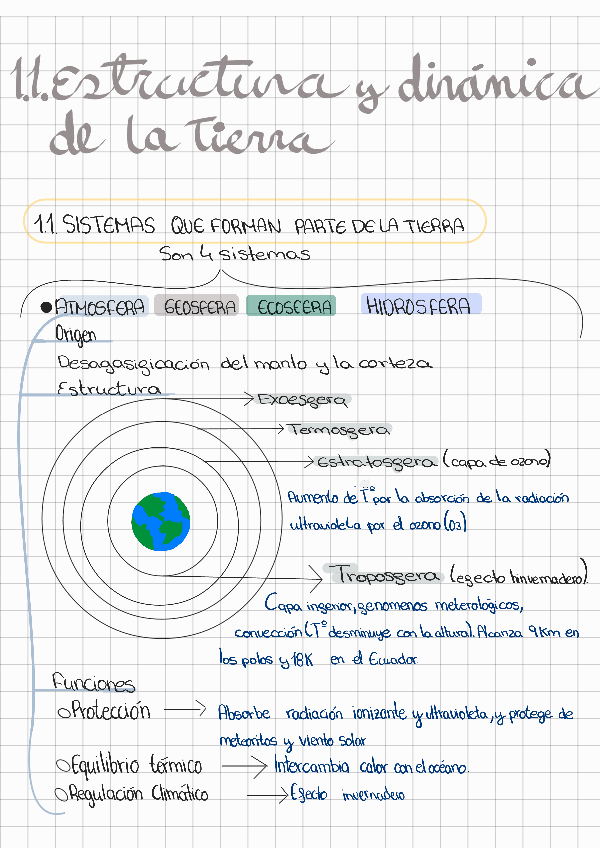 1.1. Estructura y dinámica
de la Tierra
1.1. SISTEMAS QUE FORMAN PARTE DE LA TIERRA
Son 4 sistemas
ATMOSFERA GEOSFERA ECOSFERA HIDROSFERA
Origen
Desagasificación del manto y la corteza
Estructura
Exoesfera
Termosfera
Estratosfera (capa de ozono)
Aumento de Tº por la absorción de la radiación
ultravioleta por el ozono (O3)
Troposfera (efecto hinvernadero)
Capa inferior, fenomenos meterológicos,
convección (Tº desminuye con la altura). Alcanza 9Km en
los polos y 18K en el Ecuador
Funciones
Protección → Absorbe radiación ionizante y ultravioleta, y protege de
meteoritos y viento solar
Equilibrio térmico → Intercambia calor con el océano.
Regulación Climático → Efecto invernadero